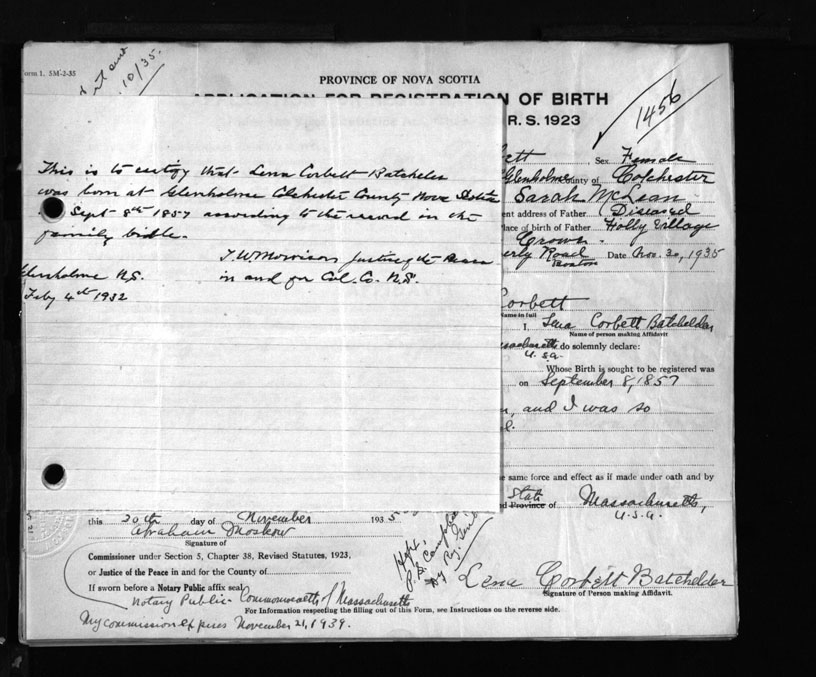 Form 1, 5M-2-35
10/35.
PROVINCE OF NOVA SCOTIA
APPLICATION FOR REGISTRATION OF BIRTH
R. S. 1923
1456
This is to certify that Lena Corbett Batcheler
was born at Glenholme Colchester County Nova Scotia
Sept 8th 1857 according to the record in the
family bible.
T. W. Morrison Justice of the Peace
in and for Col. Co. N.S.
Glenholme N.S.
Feby 4th 1932
Sex Female
Glenholme County of Colchester
Sarah McLean
ent address of Father (Diseased
lace of birth of Father Holly Village
Crown.
erly Road Boston Date Nov. 20, 1935
Corbett
Name in full
I, Lena Corbett Batchelder
Name of person making Affidavit
ssachusetts do solemnly declare:
U.S.A.
Whose Birth is sought to be registered was
on September 8, 1857
and I was so
same force and effect as if made under oath and by
State
nd Province of Massachusetts,
U.S.A.
this 20th day of November 1935
Abraham Moskow
Signature of
Commissioner under Section 5, Chapter 38, Revised Statutes, 1923,
or Justice of the Peace in and for the County of
If sworn before a Notary Public affix seal
Notary Public - Commonwealth of Massachusetts
Lena Corbett Batchelder
Signature of Person making Affidavit.
For Information respecting the filling out of this Form, see Instructions on the reverse side.
My commission expires November 21, 1939.